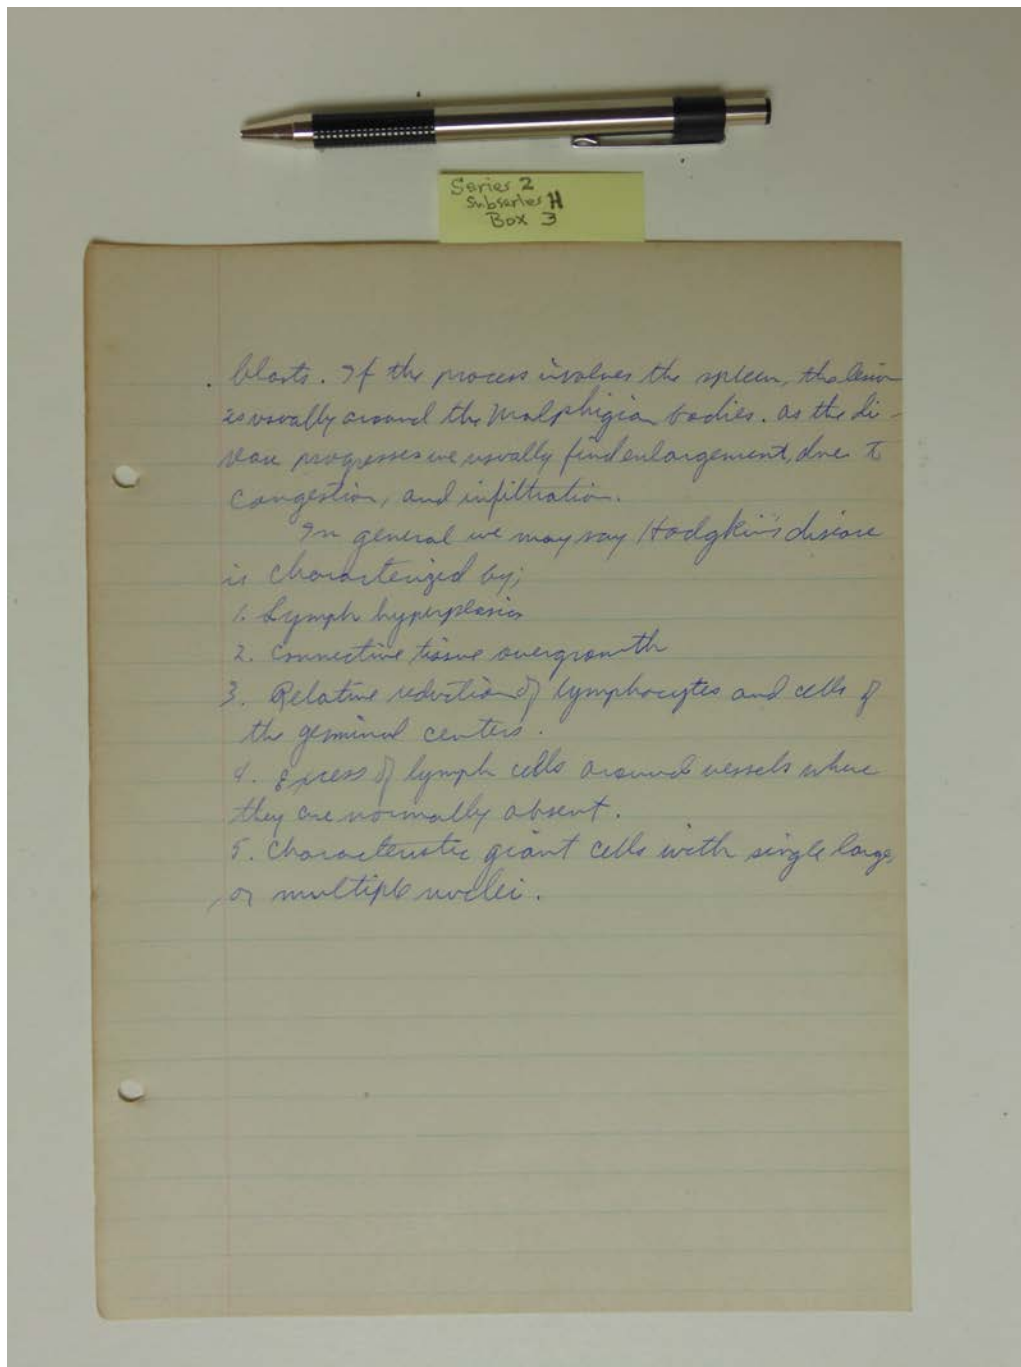 Series 2
Subseries H
Box 3
blasts. If the process involves the spleen, the lesion
is usually around the Malphigian bodies. As the di-
sease progresses we usually find enlargement, due to
congestion, and infiltration.
In general we may say Hodgkin's disease
is characterized by;
1. Lymph hyperplasia
2. Connective tissue overgrowth
3. Relative reduction of lymphocytes and cells of
the germinal centers.
4. Excess of lymph cells around vessels where
they are normally absent.
5. Characteristic giant cells with single large,
or multiple nuclei.